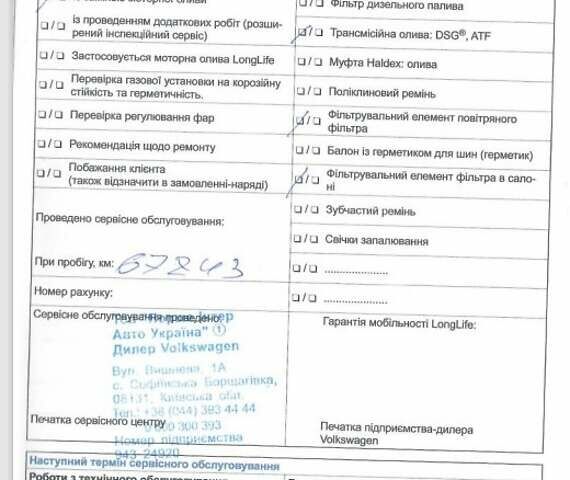 Фільтр дизельного палива
❏ / ❏ із проведенням додаткових робіт (розши-
рений інспекційний сервіс)
❏ / ❏ Трансмісійна олива: DSG®, ATF
❏ / ❏ Застосовується моторна олива LongLife
❏ / ❏ Муфта Haldex: олива
❏ / ❏ Перевірка газової установки на корозійну
стійкість та герметичність.
❏ / ❏ Поліклиновий ремінь
❏ / ❏ Перевірка регулювання фар
❏ / ❏ Фільтрувальний елемент повітряного
фільтра
❏ / ❏ Рекомендація щодо ремонту
❏ / ❏ Балон із герметиком для шин (герметик)
❏ / ❏ Побажання клієнта
(також відзначити в замовленні-наряді)
❏ / ❏ Фільтрувальний елемент фільтра в сало-
ні
❏ / ❏ Зубчастий ремінь
Проведено сервісне обслуговування:
❏ / ❏ Свічки запалювання
При пробігу, км: 67243
❏ / ❏ .....................
Номер рахунку:
❏ / ❏ .....................
Сервісне обслуговування проведено:
Гарантія мобільності LongLife:
Інтер
Авто Україна" ①
Дилер Volkswagen
Вул. Вишнева, 1А
с. Софіївська Борщагівка,
08131, Київська обл.
Тел.: +38 (044) 393 44 44
0 800 300 393
Номер підприємства
943-24920
Печатка сервісного центру
Печатка підприємства-дилера
Volkswagen
Наступний термін сервісного обслуговування
Роботи з технічного обслуговування